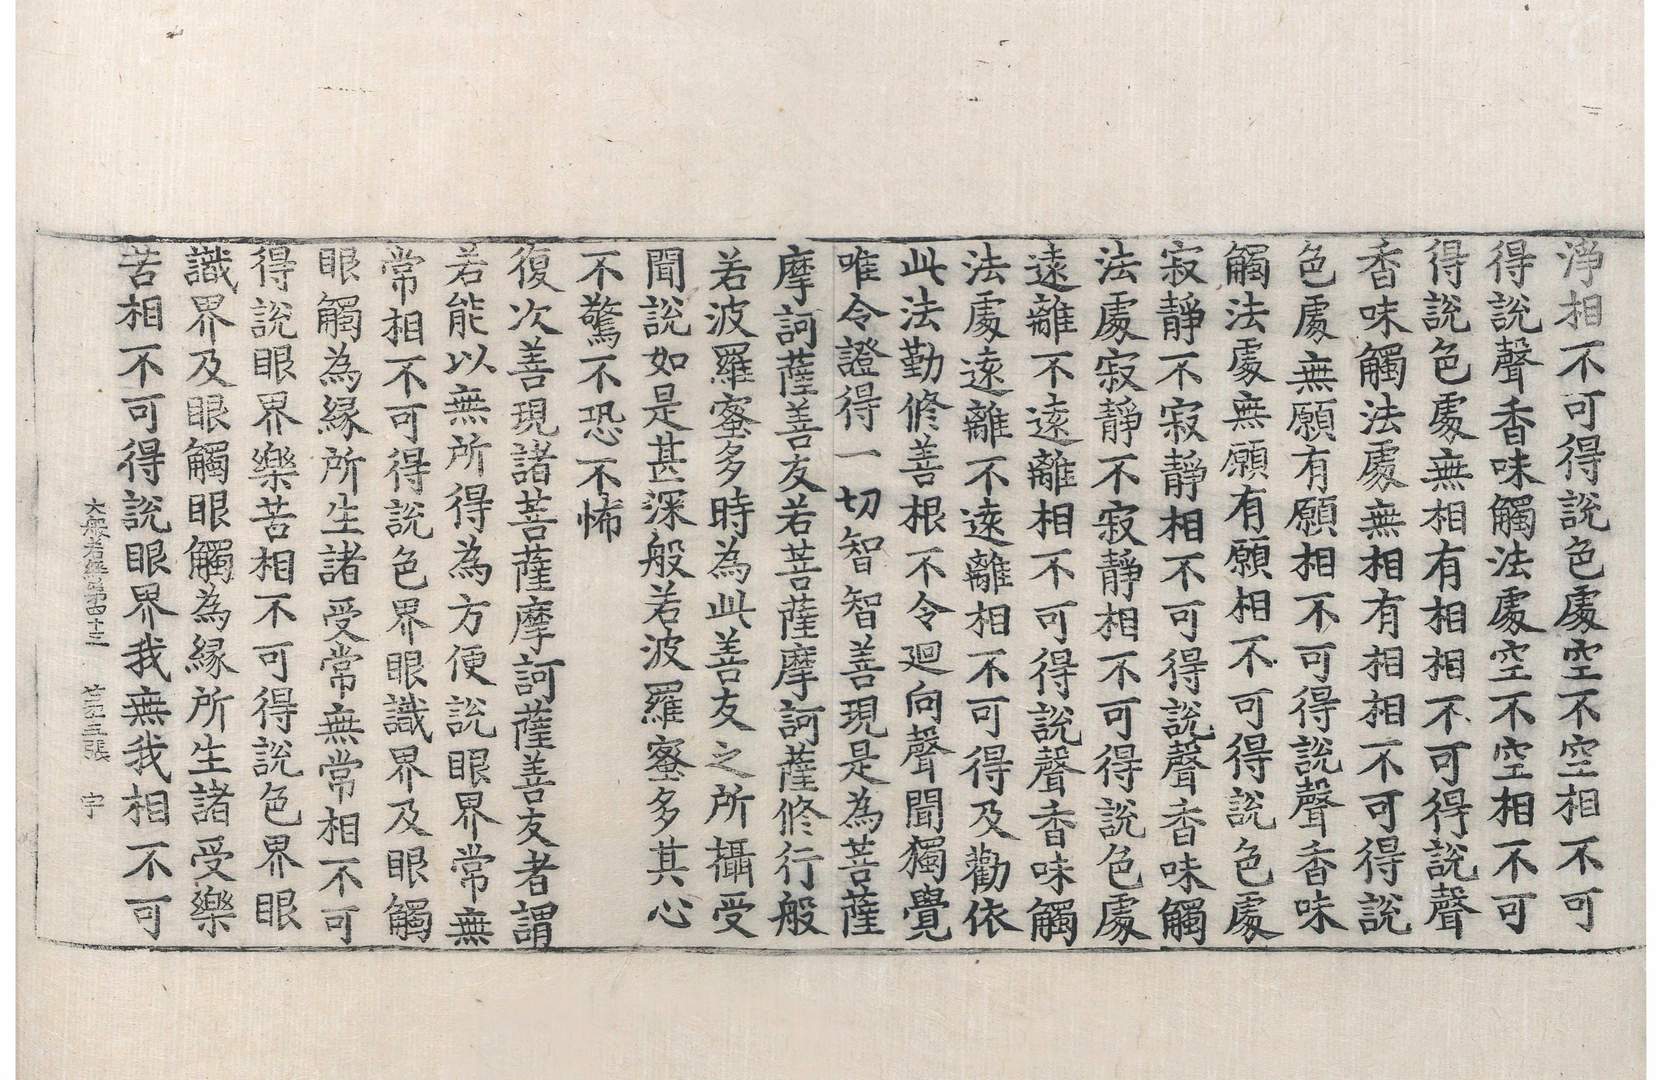 淨相不可得說色處空不空相不可
得說聲香味觸法處空不空相不可
得說色處無相有相相不可得說聲
香味觸法處無相有相相不可得說
色處無願有願相不可得說聲香味
觸法處無願有願相不可得說色處
寂靜不寂靜相不可得說聲香味觸
法處寂靜不寂靜相不可得說色處
遠離不遠離相不可得說聲香味觸
法處遠離不遠離相不可得及勸依
此法勤修善根不令迴向聲聞獨覺
唯令證得一切智智善現是為菩薩
摩訶薩善友若菩薩摩訶薩修行般
若波羅蜜多時為此善友之所攝受
聞說如是甚深般若波羅蜜多其心
不驚不恐不怖
復次善現諸菩薩摩訶薩善友者謂
若能以無所得為方便說眼界常無
常相不可得說色界眼識界及眼觸
眼觸為緣所生諸受常無常相不可
得說眼界樂苦相不可得說色界眼
識界及眼觸眼觸為緣所生諸受樂
苦相不可得說眼界我無我相不可
大般若經第四十三 張 宇